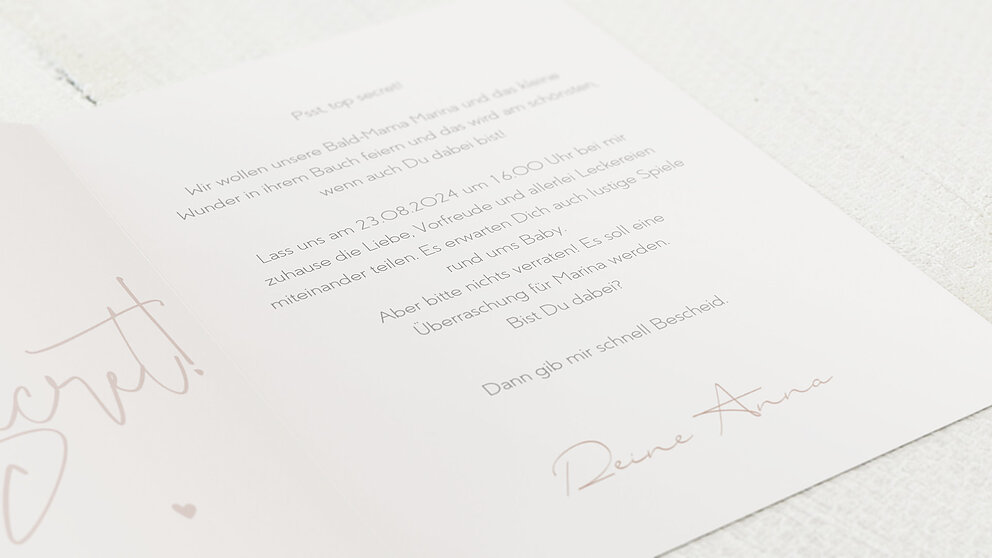 ecret!
Psst, top secret!
Wir wollen unsere Bald-Mama Marina und das kleine
Wunder in ihrem Bauch feiern und das wird am schönsten,
wenn auch Du dabei bist!
Lass uns am 23.08.2024 um 16:00 Uhr bei mir
zuhause die Liebe, Vorfreude und allerlei Leckereien
miteinander teilen. Es erwarten Dich auch lustige Spiele
rund ums Baby.
Aber bitte nichts verraten! Es soll eine
Überraschung für Marina werden.
Bist Du dabei?
Dann gib mir schnell Bescheid.
Deine Anna